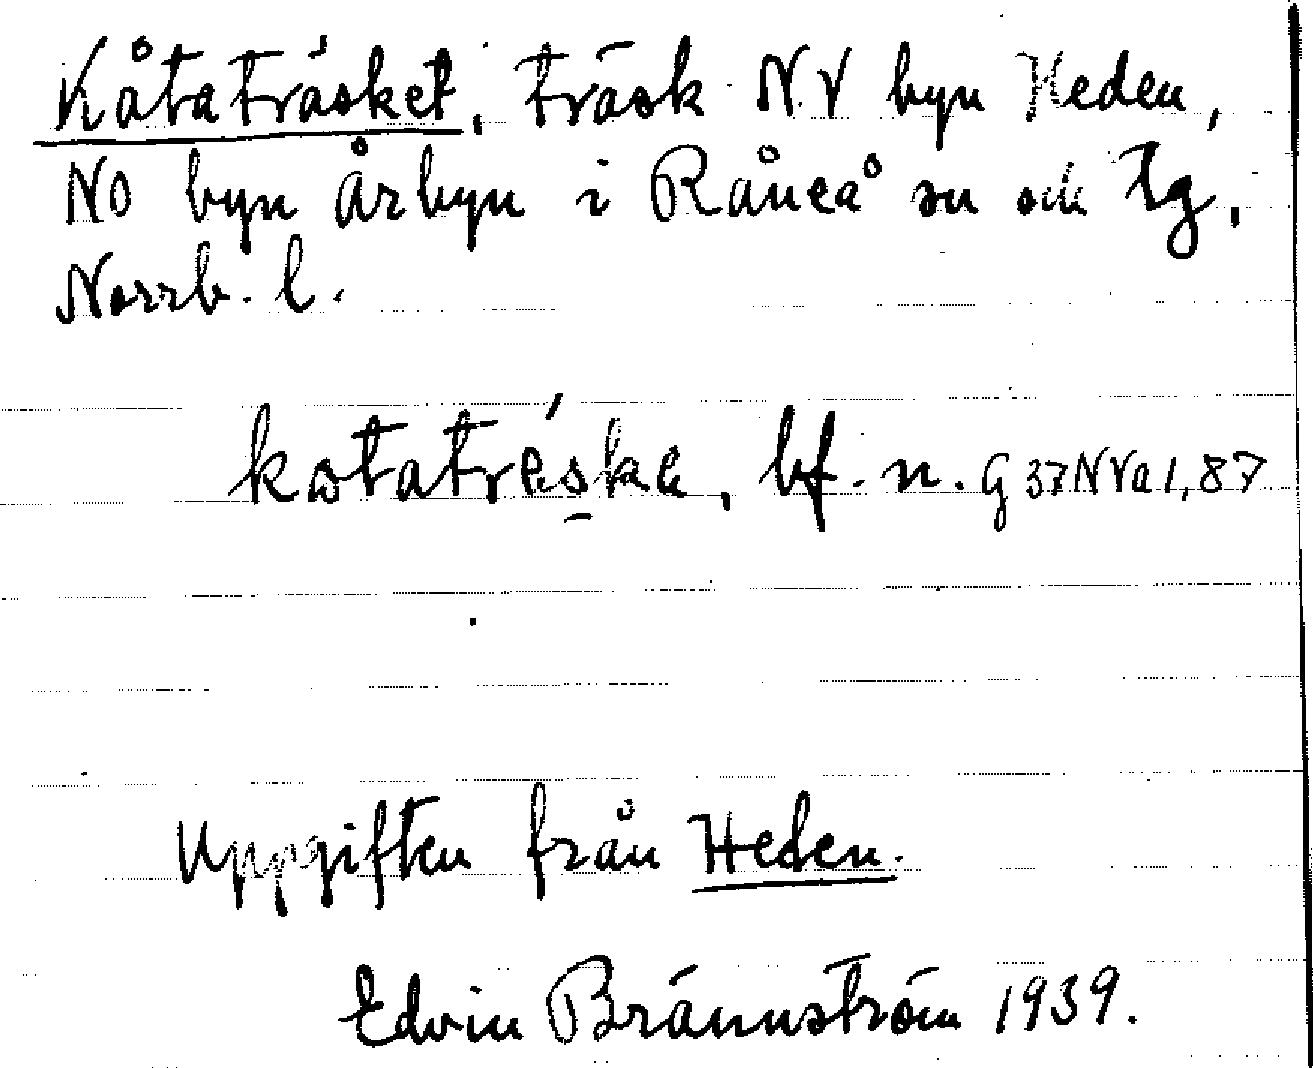 Kåtaträsket, träsk NV byn Heden,
NO byn Årbyn i Råneå sn och tg,
Norrb. l.
kωtatrés̱ka, bf. n. G 37NVa1,87
Uppgiften från Heden.
Edvin Brännström 1939.